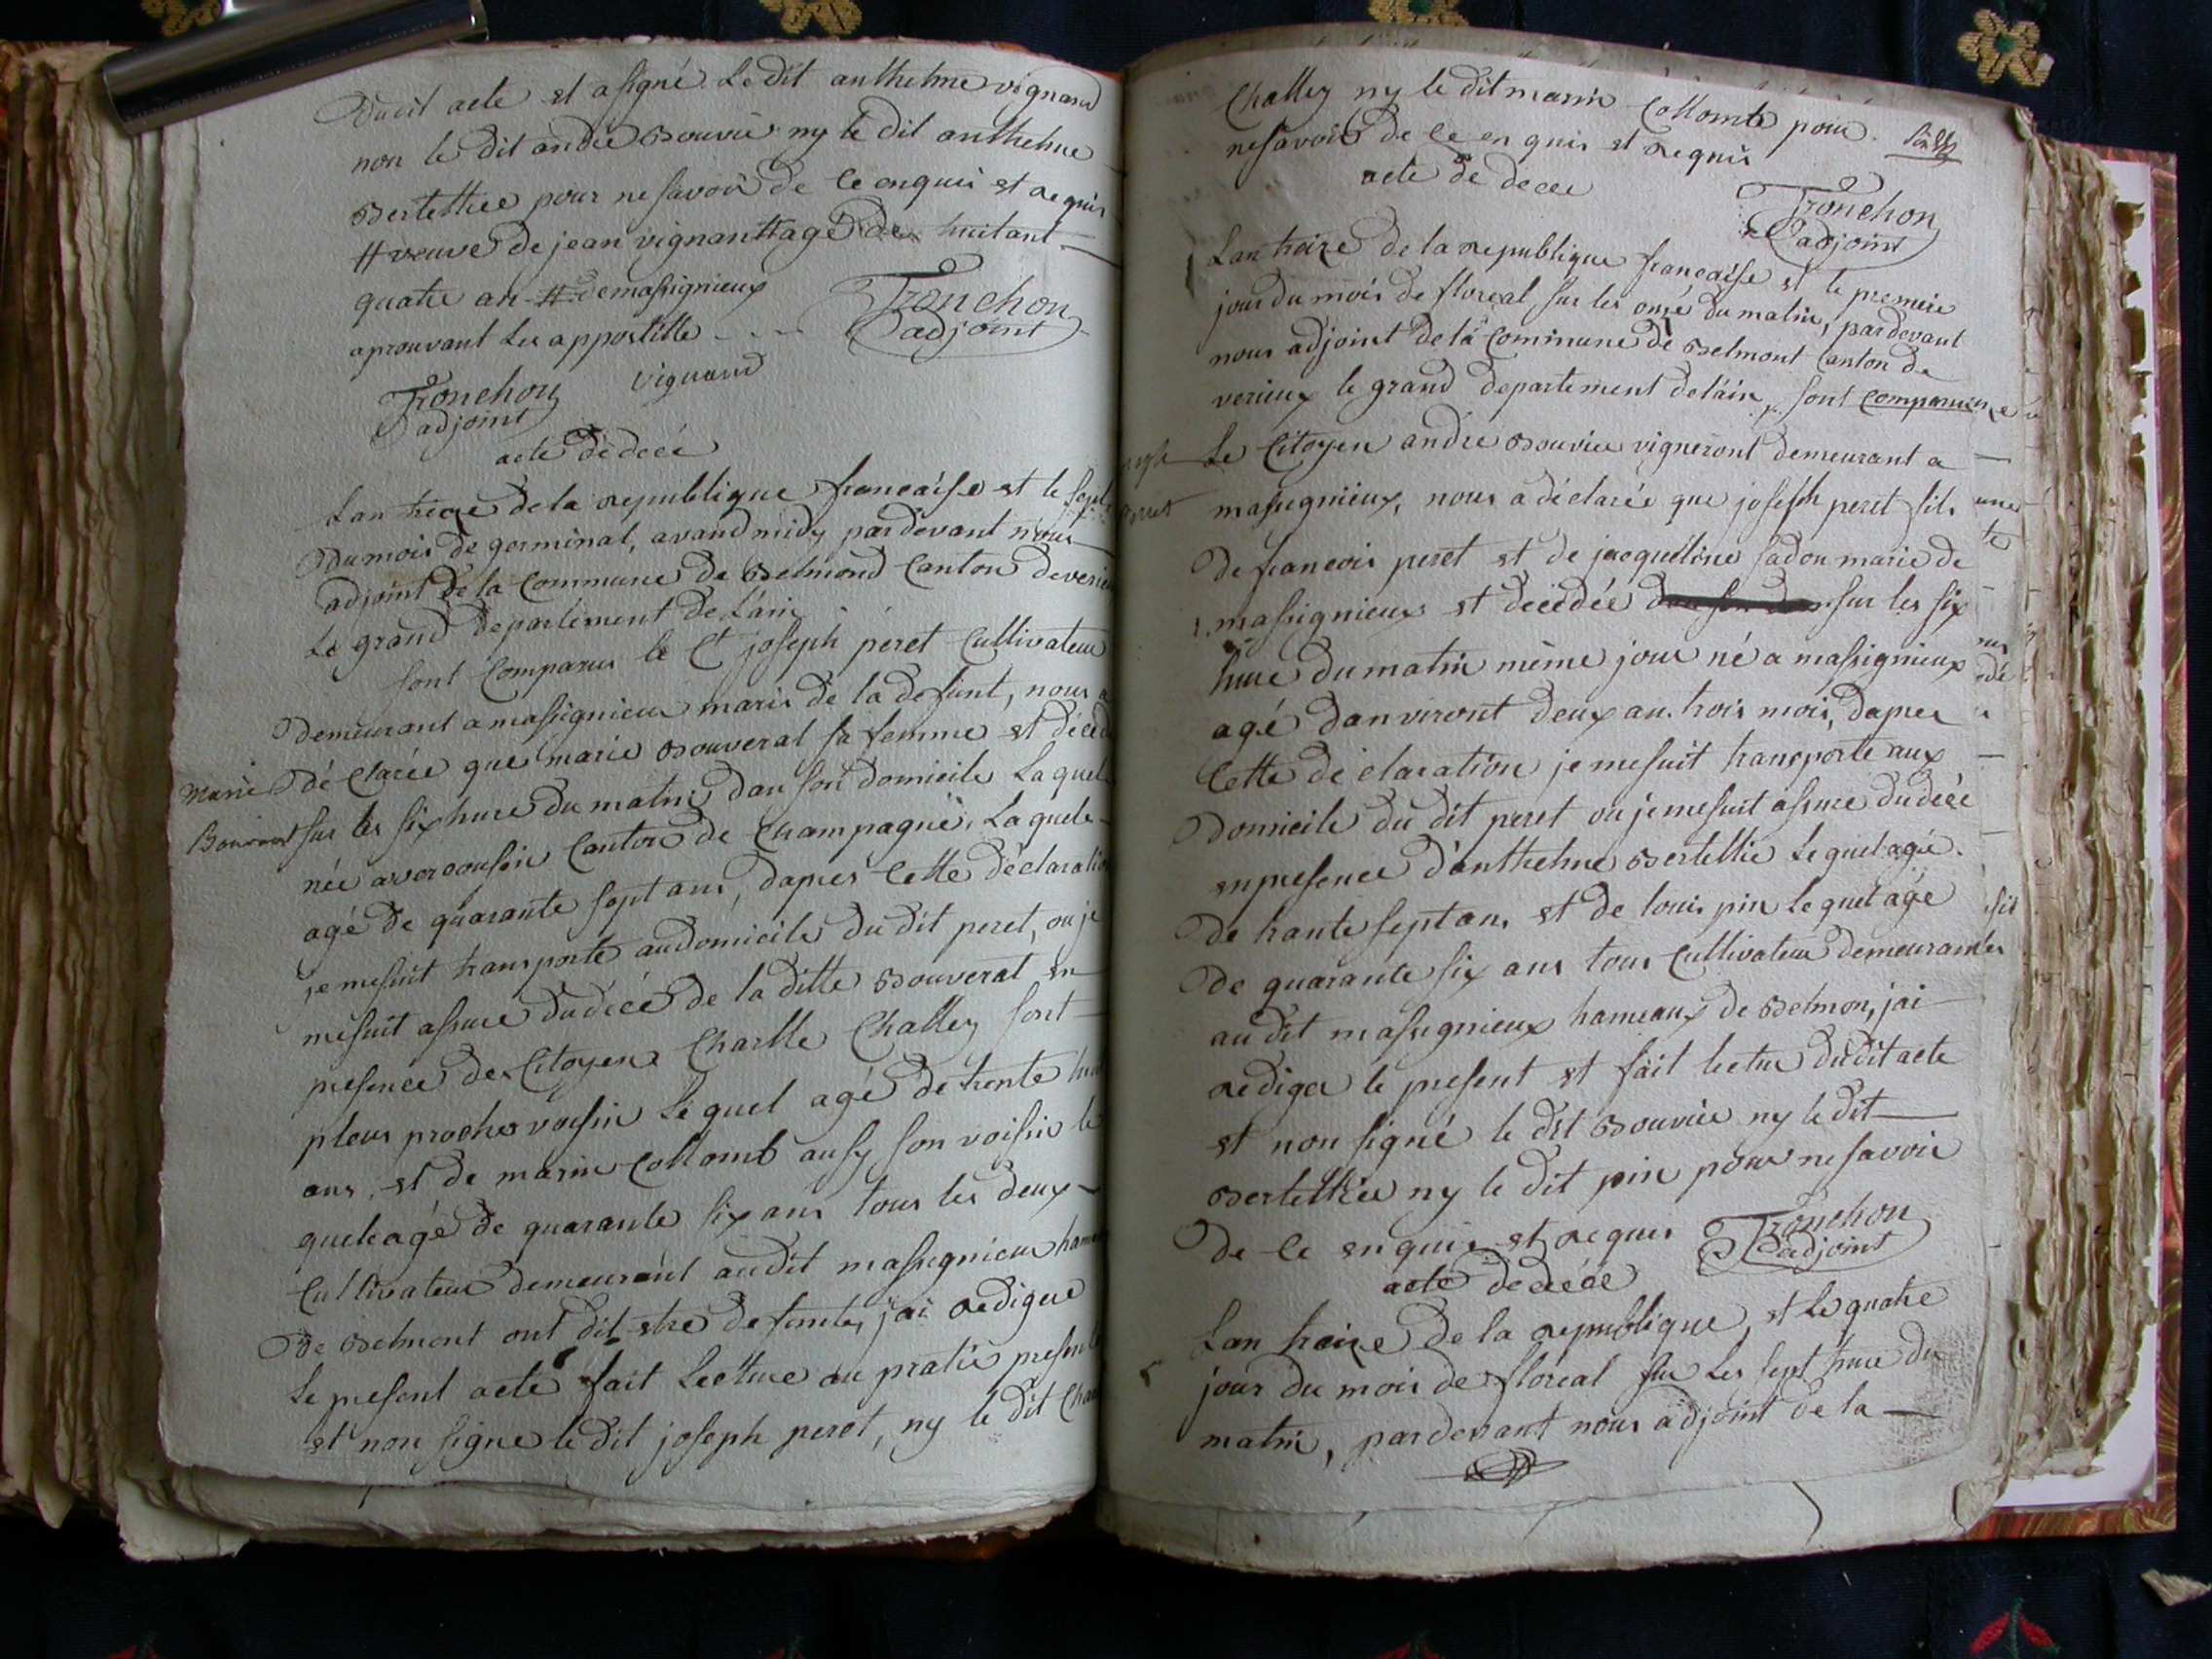 Dudit acte et a signé. Le dit anthelme vignand
non le dit andré Bouvié ny le dit anthelme
Bertethié pour ne savoir de ce enquis et requis
# veuve de jean vignant # agé de huitant
quatre an # de massignieux
aprouvant les appostille
Tronchon
adjoint
vignand
Tronchon
adjoint
acte de decé
L'an treize de la republique française et le sept
Du mois de germinal, avand midy pardevant nous
adjoint de la commune de Belmond Canton de verieu
Le grand departement de L'ain
sont comparus le Ct joseph peret cultivateur
Demeurant a massignieu maris de la defunt, nous a
Declarée que marie Bouverat sa femme et décedé
Marie
sur les six hure du matin dan son domicile Laquel
Bouverat
née avercousin canton de Champagne, Laquele
agé de quarante sept ans, dapres cette déclaration
je me suit transporté audomicile du dit peret, ou je
me suit assure du décé de la ditte Bouverat en
presence de Citoyen Charlle Challey sont
pleus proche voisin Lequel agé de trente huit
ans, et de marin Collomb ausy son voisin le
quele agé de quarante six ans tous les deux
Cultivateur demeurant audit massignieu hameau
De Belmont ont dit etre defunte, jai redigue
Le present acte fait Lecture au pratie present
et non signe le dit joseph peret, ny le dit Charle
Challey ny le dit marin Collomb pour
ne savoir de ce en quis et requis
Tronchon
adjoint
acte de decee
Lan treize de la republique française et le premeire
jour du mois de floreal sur les onze du matin, pardevant
nous adjoint de la Commune de Belmont Canton de
verieux le grand departement delain, sont comparu
Le Citoyen andre Bouvier vigneront demeurant a
massignieux, nous a déclarée que joseph peret fils
De francois peret et de jacqueline sadou marie de
massignieux et décédée sur les six
hure du matin même jour né a massignieux
agé danviront deux an trois mois, dapres
Cette declaration je me suit transporte aux
Domicile du dit peret ou je me suit assure du décé
en presence d'anthelme Bertellie Le quel agé
De trante sept ans et de louis pin le quel agé
De quarante six ans tous Cultivateur demeurantes
audit massignieux hameaux de Belmon, jai
rediger le present et fait lecture dudit acte
et non signé le dit Bouvier ny le dit
Bertellier ny le dit pin pour ne savoir
De ce en quis et requis
Tronchon
adjoint
acte de decée
Lan treize de la republique et le quatre
jour du mois de floréal sur Les sept hure du
matin, pardevant nous adjoint de la